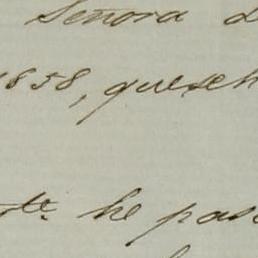 Señora
1858, que se h
te he pas